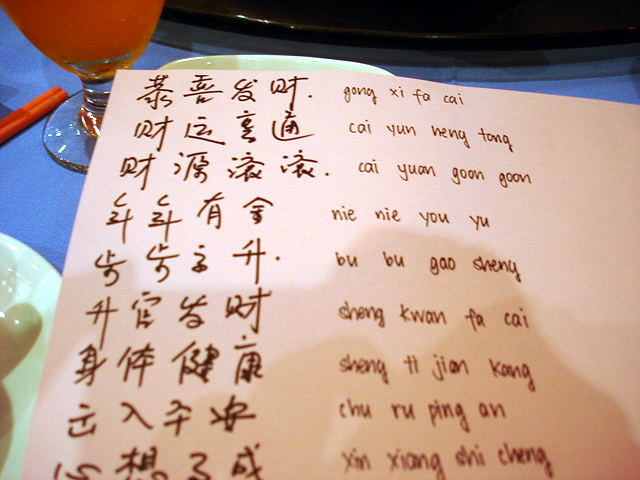 恭喜发财. gong xi fa cai
财运亨通 cai yun heng tong
财源滚滚. cai yuan goon goon
年年有余 nie nie you yu
步步高升. bu bu gao sheng
升官发财 sheng kwan fa cai
身体健康 sheng ti jian kang
出入平安 chu ru ping an
心想事成 xin xiang shi cheng